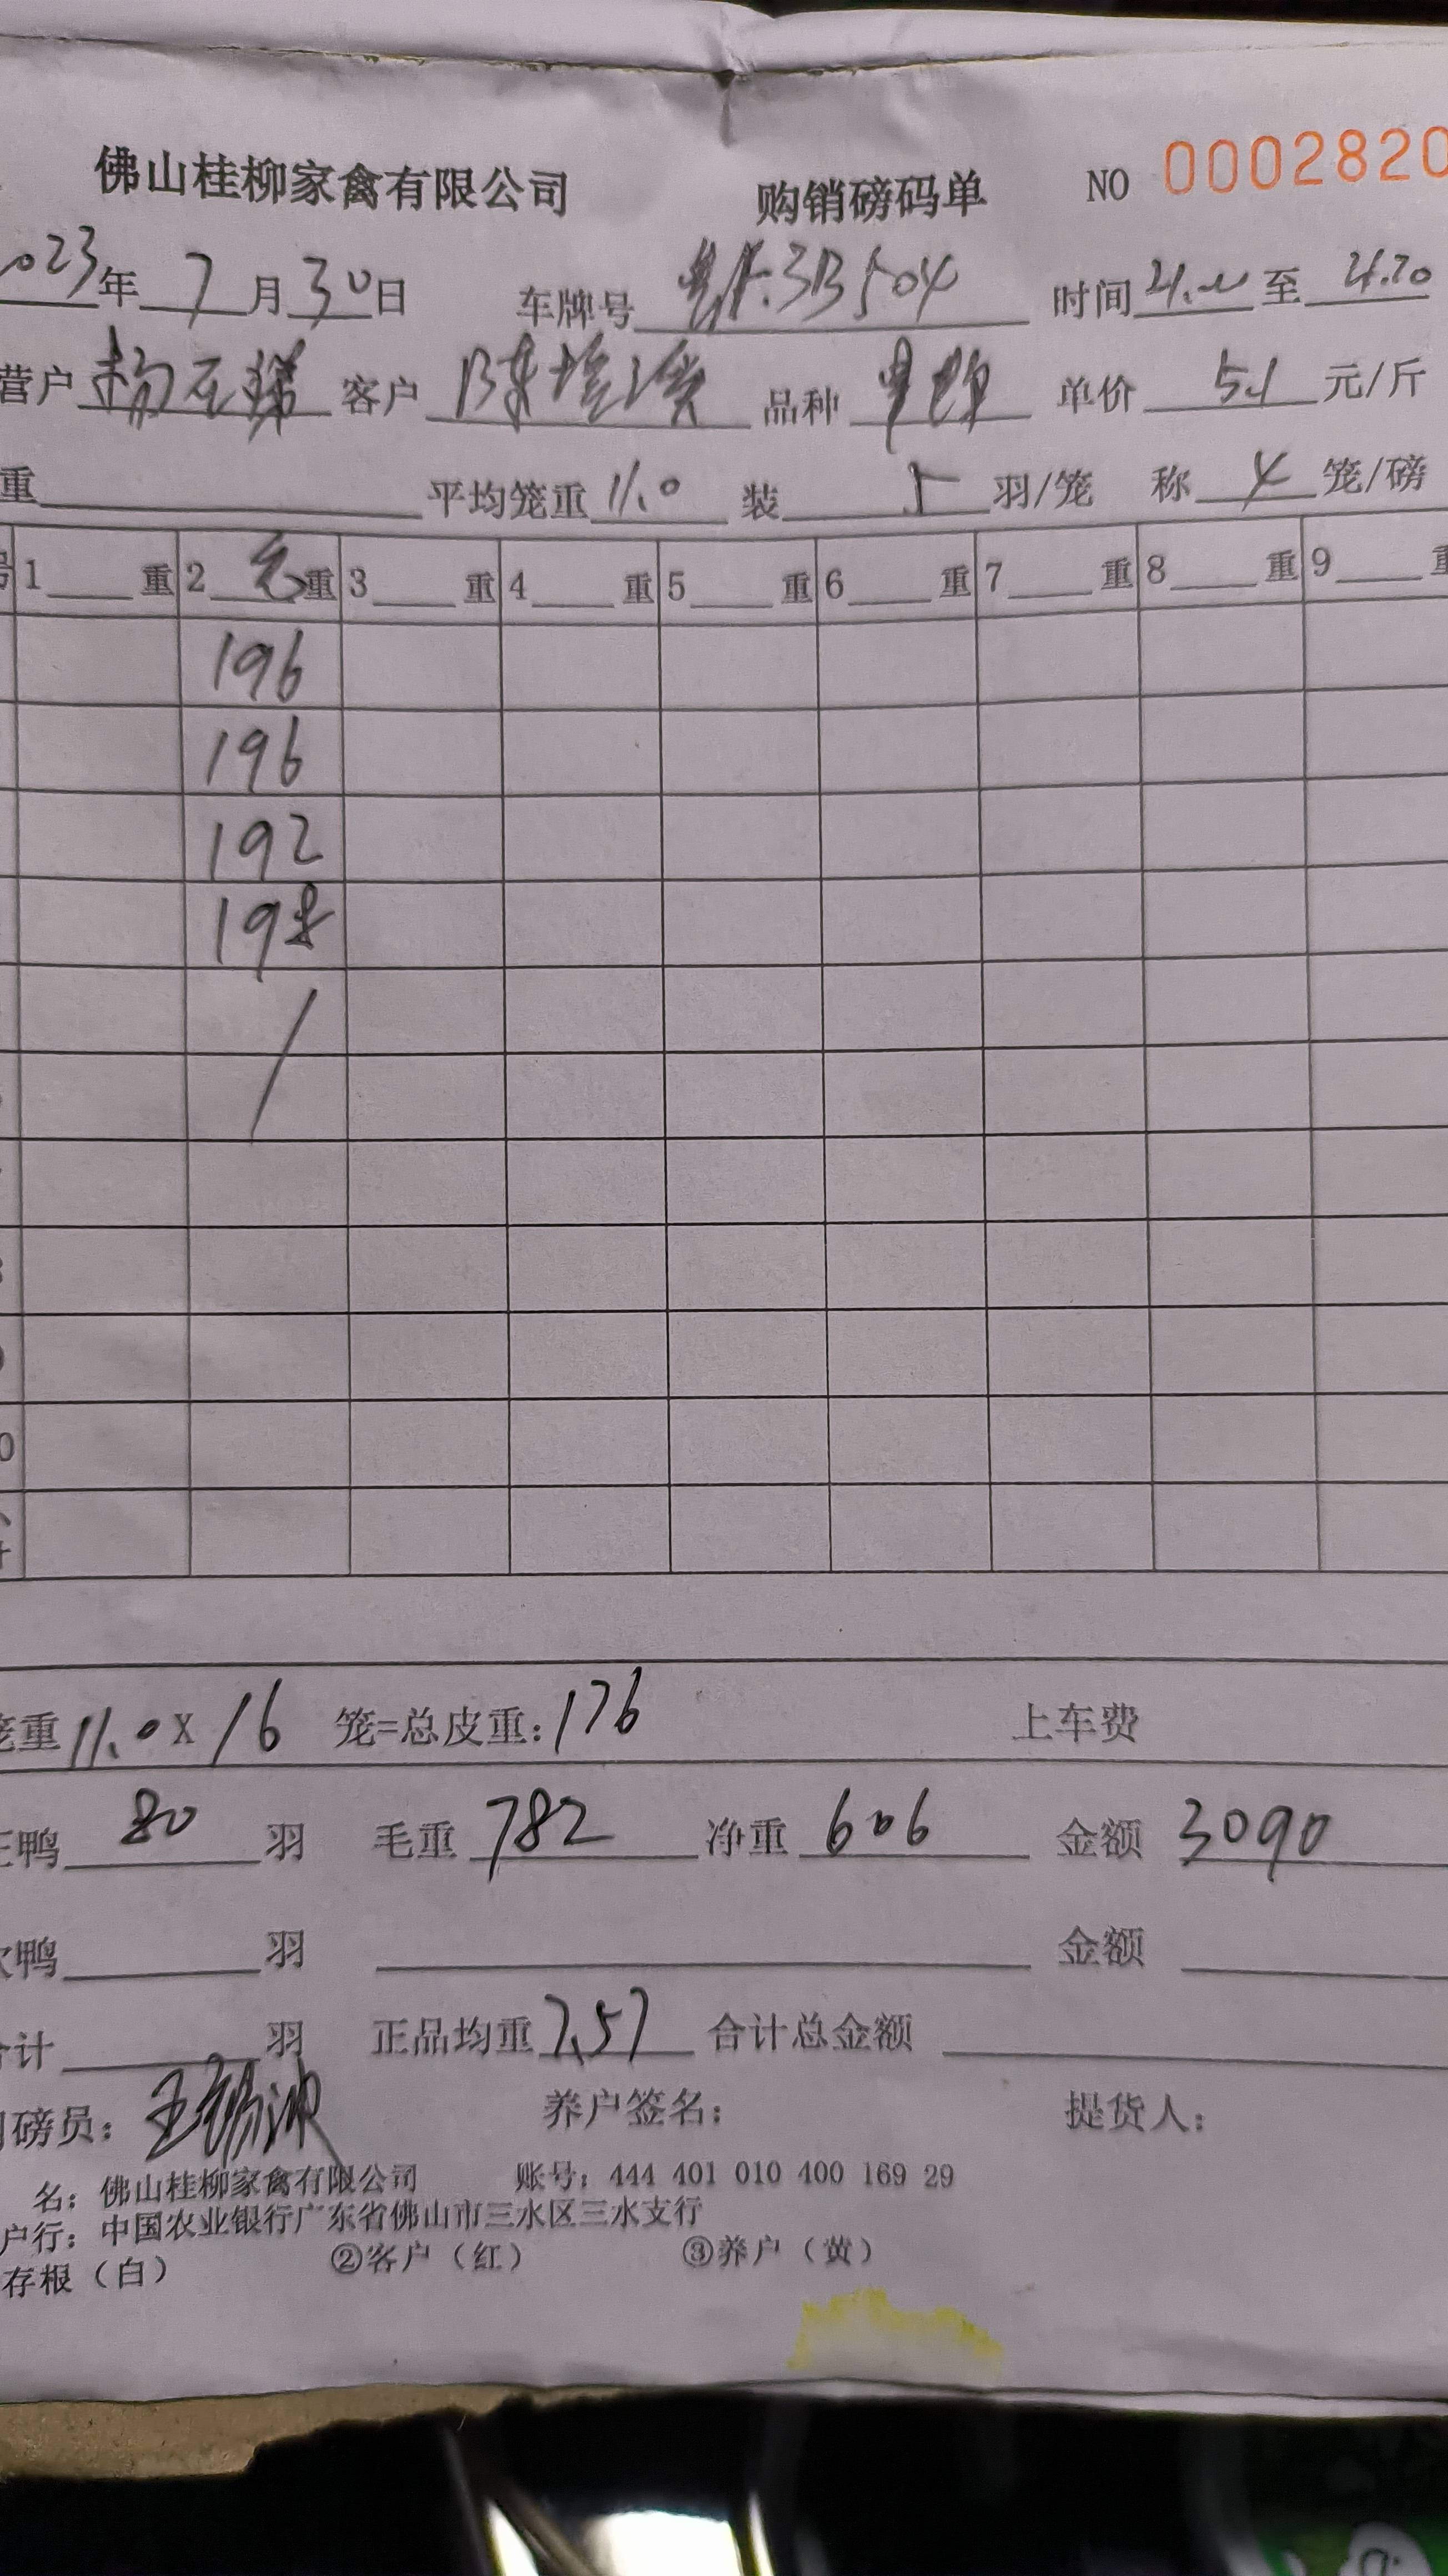 佛山桂柳家禽有限公司 购销磅码单 NO 0002820
2023年 7 月 30 日 车牌号 3B504 时间 至
营户 杨 客户 陈 品种 单价 5.1 元/斤
重 平均笼重 11.0 装 5 羽/笼 称 4 笼/磅
1 重 2 重 3 重 4 重 5 重 6 重 7 重 8 重 9
196
196
192
198
0
笼重 11.0 X 16 笼=总皮重: 176 上车费
正鸭 80 羽 毛重 782 净重 606 金额 3090
次鸭 羽 金额
合计 羽 正品均重 7.57 合计总金额
磅员: 王 养户签名: 提货人:
名: 佛山桂柳家禽有限公司 账号: 444 401 010 400 169 29
户行: 中国农业银行广东省佛山市三水区三水支行
存根(白) ②客户(红) ③养户(黄)